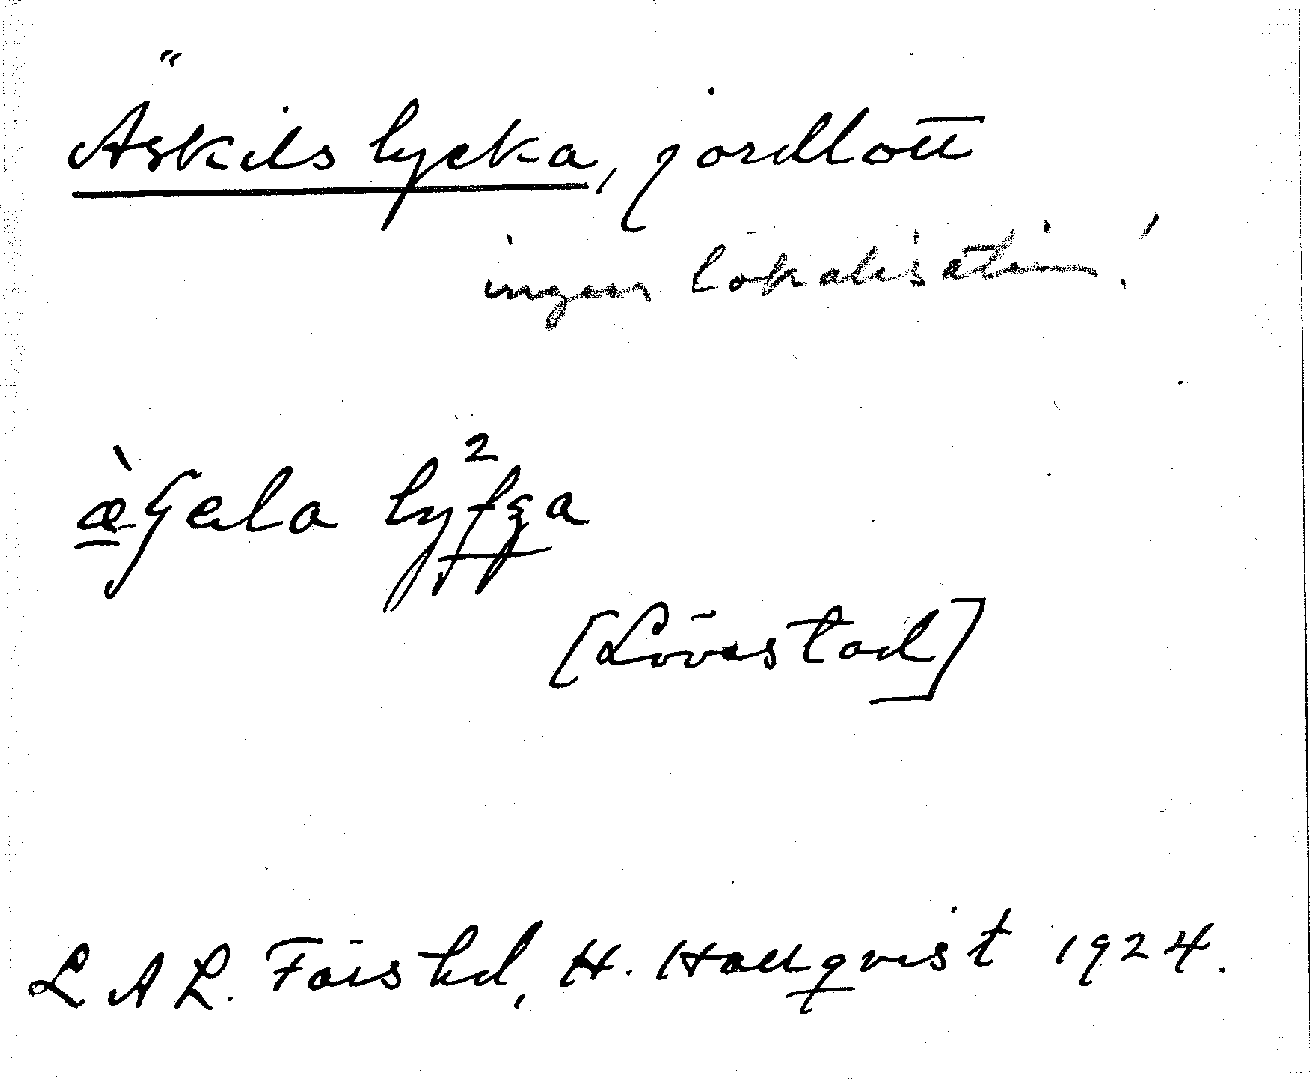 Äskils lycka, jordlott
ingen lokalisation!
[Lövestad]
L A L. Färs hd, H. Hallqvist 1924.